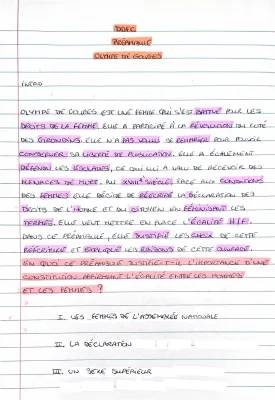 DDFC
PRÉAMBULE
OLYMPE DE GOUGES
INTRO
OLYMPE DE GOUGES EST UNE FEMME QUI S'EST BATTUE POUR LES
DROITS DE LA FEMME. ELLE A PARTICIPÉ À LA RÉVOLUTION DU CÔTÉ
DES GIRONDINS. ELLE N'A PAS VOULU SE REMARIER POUR POUVOIR
CONSERVER SA LIBERTÉ DE PUBLICATION. ELLE A ÉGALEMENT
DÉFENDU LES ESCLAVES, CE QUI LUI A VALU DE RECEVOIR DES
MENACES DE MORT. AU XVIIIe SIÈCLE, FACE AUX CONDITIONS
DES FEMMES ELLE DÉCIDE DE RÉÉCRIRE LA DÉCLARATION DES
DROITS DE L'HOMME ET DU CITOYEN EN FÉMINISANT LES
TERMES. ELLE VEUT METTRE EN PLACE L'ÉGALITÉ H/F.
DANS CE PRÉAMBULE, ELLE JUSTIFIE LES CHOIX DE CETTE
RÉÉCRITURE ET EXPLIQUE LES RAISONS DE CETTE
EN QUOI CE PRÉAMBULE JUSTIFIE-T-IL L'IMPORTANCE D'UNE
CONSTITUTION AFFIRMANT L'ÉGALITÉ ENTRE LES HOMMES
ET LES FEMMES ?
I. LES FEMMES DE L'ASSEMBLÉE NATIONALE
II. LA DÉCLARATION
III. UN SEXE SUPÉRIEUR